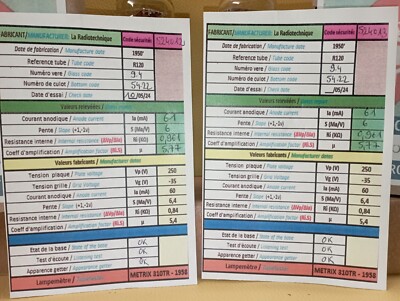 FABRICANT/MANUFACTURER: La Radiotechnique Code sécurité:
Date de fabrication / Manufacture date 1950'
Reference tube / Tube code R120
Numéro verre / Glass code 9.4
Numéro de culot / Bottom code 54.22
Date d'essai / Check date 10/05/24
Valeurs relevées /
Courant anodique / Anode current Ia (mA) 61
Pente / Slope (+1,-1v) S (Ma/V) 6
Resistance interne / Internal resistance (ΔVp/ΔIa) Ri (KΩ) 0,961
Coeff d'amplification / Amplification factor (Ri.S) µ 5,77
Valeurs fabricants / Manufacturer datas
Tension plaque / Plate voltage Vp (V) 250
Tension grille / Grid Voltage Vg (V) -35
Courant anodique / Anode current Ia (mA) 60
Pente / Slope (+1,-1v) S (Ma/V) 6,4
Resistance interne / Internal resistance (ΔVp/ΔIa) Ri (KΩ) 0,84
Coeff d'amplification / Amplification factor (Ri.S) µ 5,4
Etat de la base / State of the base OK
Test d'écoute / Listening test OK
Apparence getter / Getter OK
Lampemètre / METRIX 310TR - 1958
FABRICANT/MANUFACTURER: La Radiotechnique Code sécurité:
Date de fabrication / Manufacture date 1950'
Reference tube / Tube code R120
Numéro verre / Glass code 9.4
Numéro de culot / Bottom code 54.22
Date d'essai / Check date __/05/24
Valeurs relevées /
Courant anodique / Anode current Ia (mA) 61
Pente / Slope (+1,-1v) S (Ma/V) 6
Resistance interne / Internal resistance (ΔVp/ΔIa) Ri (KΩ) 0,961
Coeff d'amplification / Amplification factor (Ri.S) µ 5,77
Valeurs fabricants / Manufacturer datas
Tension plaque / Plate voltage Vp (V) 250
Tension grille / Grid Voltage Vg (V) -35
Courant anodique / Anode current Ia (mA) 60
Pente / Slope (+1,-1v) S (Ma/V) 6,4
Resistance interne / Internal resistance (ΔVp/ΔIa) Ri (KΩ) 0,84
Coeff d'amplification / Amplification factor (Ri.S) µ 5,4
Etat de la base / State of the base OK
Test d'écoute / Listening test OK
Apparence getter / Getter OK
Lampemètre / METRIX 310TR - 1958